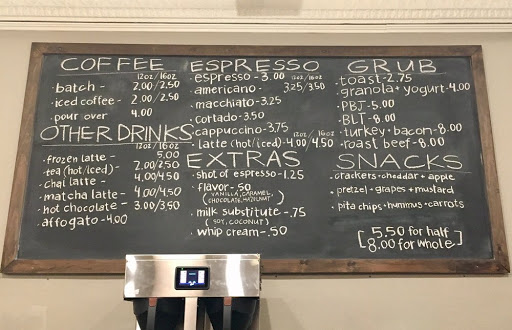 COFFEE
12oz/16oz
· batch - 2.00/2.50
· iced coffee - 2.00/2.50
· pour over 4.00
OTHER DRINKS
12oz/16oz
· frozen latte - 5.00
· tea (hot/iced) - 2.00/2.50
· chai latte - 4.00/4.50
· matcha latte - 4.00/4.50
· hot chocolate - 3.00/3.50
· affogato - 4.00
ESPRESSO
· espresso - 3.00 12oz/16oz
· americano - 3.25/3.50
· macchiato - 3.25
· cortado - 3.50
· cappuccino - 3.75 12oz/16oz
· latte (hot/iced) - 4.00/4.50
EXTRAS
· shot of espresso - 1.25
· flavor - .50
(VANILLA, CARAMEL,
CHOCOLATE, HAZELNUT)
· milk substitute - .75
(SOY, COCONUT)
· whip cream - .50
GRUB
· toast - 2.75
· granola + yogurt - 4.00
· PBJ - 5.00
· BLT - 8.00
· turkey + bacon - 8.00
· roast beef - 8.00
SNACKS
· crackers + cheddar + apple
· pretzel + grapes + mustard
· pita chips + hummus + carrots
[5.50 for half
8.00 for whole]